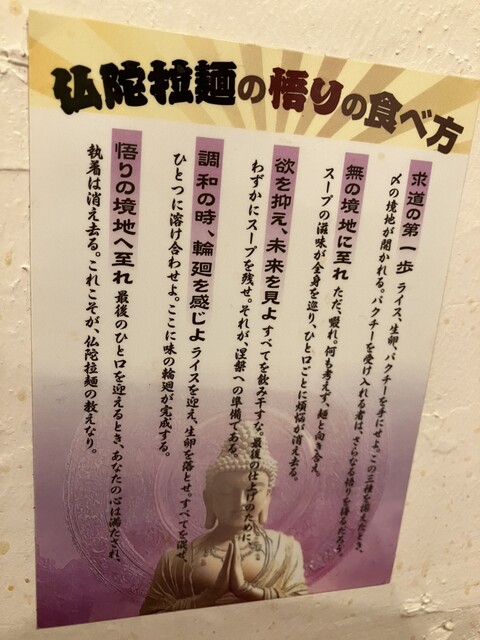 仏陀拉麺の悟りの食べ方
求道の第一歩 ライス、生卵、パクチーを手にせよ。この三種を揃えたとき、
〆の境地が開かれる。パクチーを受け入れる者は、さらなる悟りを得るだろう。
無の境地に至れ ただ、啜れ。何も考えず、麺と向き合え。
スープの滋味が全身を巡り、ひと口ごとに煩悩が消え去る。
欲を抑え、未来を見よ すべてを飲み干すな。最後の仕上げのために、
わずかにスープを残せ。それが、涅槃への準備である。
調和の時、輪廻を感じよ ライスを迎え、生卵を落とせ。すべてを混ぜ、
ひとつに溶け合わせよ。ここに味の輪廻が完成する。
悟りの境地へ至れ 最後のひと口を迎えるとき、あなたの心は満たされ、
執着は消え去る。これこそが、仏陀拉麺の教えなり。